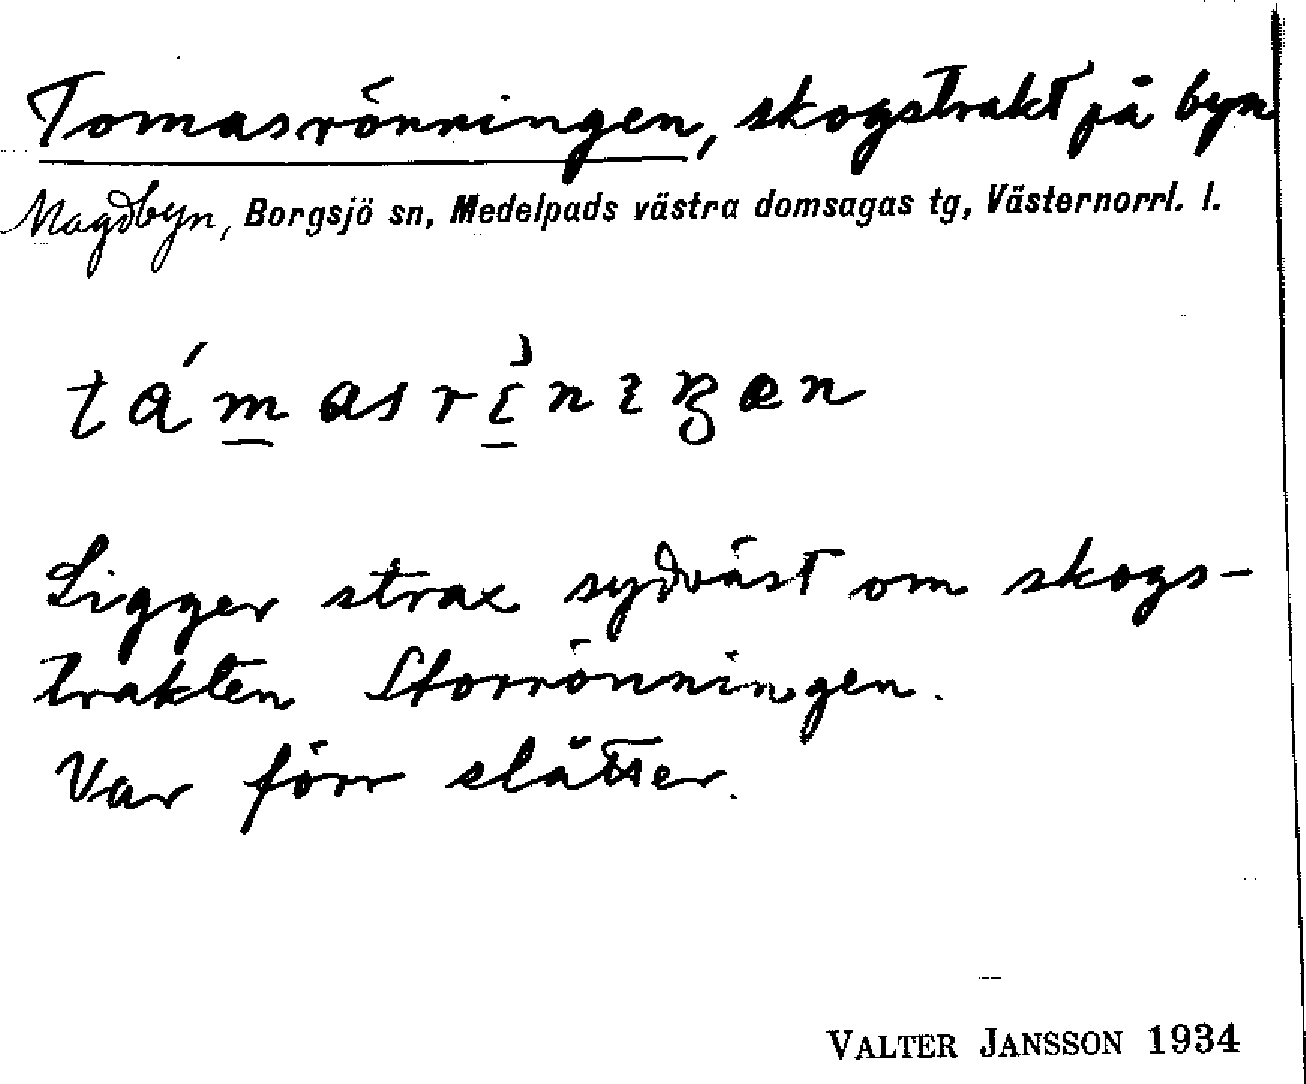 Tomasrönningen, skogstrakt på byn
Magdbyn, Borgsjö sn, Medelpads västra domsagas tg, Västernorrl. l.
Ligger strax sydväst om skogs-
trakten Storrönningen.
Var förr slåtter.
VALTER JANSSON 1934